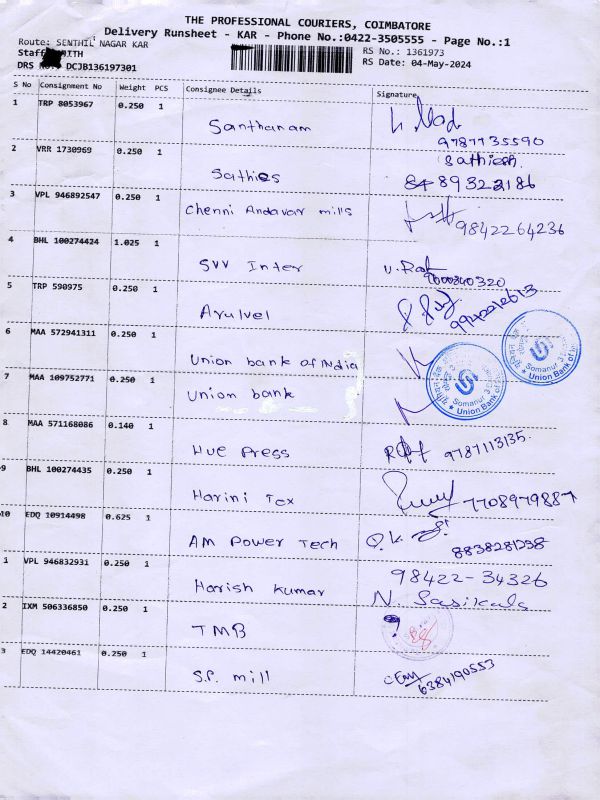 THE PROFESSIONAL COURIERS, COIMBATORE
Delivery Runsheet - KAR - Phone No.:0422-3505555 - Page No.:1
Route: SENTHIL NAGAR KAR RS No.: 1361973
Staff RS Date: 04-May-2024
DRS DCJB136197301
S No Consignment No Weight PCS Consignee Details Signature
1 TRP 8053967 0.250 1
Santhanam
9787735590
2 VRR 1730969 0.250 1 Sathiesh
Sathies
3 VPL 946892547 0.250 1 Chenni Andavar mills
9842264236
4 BHL 100274424 1.025 1
SVV Inter
9600340320
5 TRP 590975 0.250 1
Arulvel
6 MAA 572941311 0.250 1
Union bank of India
7 MAA 109752771 0.250 1
Union bank
Somanur
Union Bank of
Somanur
Union Bank of
8 MAA 571168086 0.140 1
Hue Press 9787113135.
9 BHL 100274435 0.250 1
Harini Tex 7708979887
10 EDQ 10914498 0.625 1
AM Power Tech 8838281298
1 VPL 946832931 0.250 1 98422-34326
Harish kumar N. Sasikala
2 IXM 506336850 0.250 1
TMB
3 EDQ 14420461 0.250 1
S.P. mill 6384190553